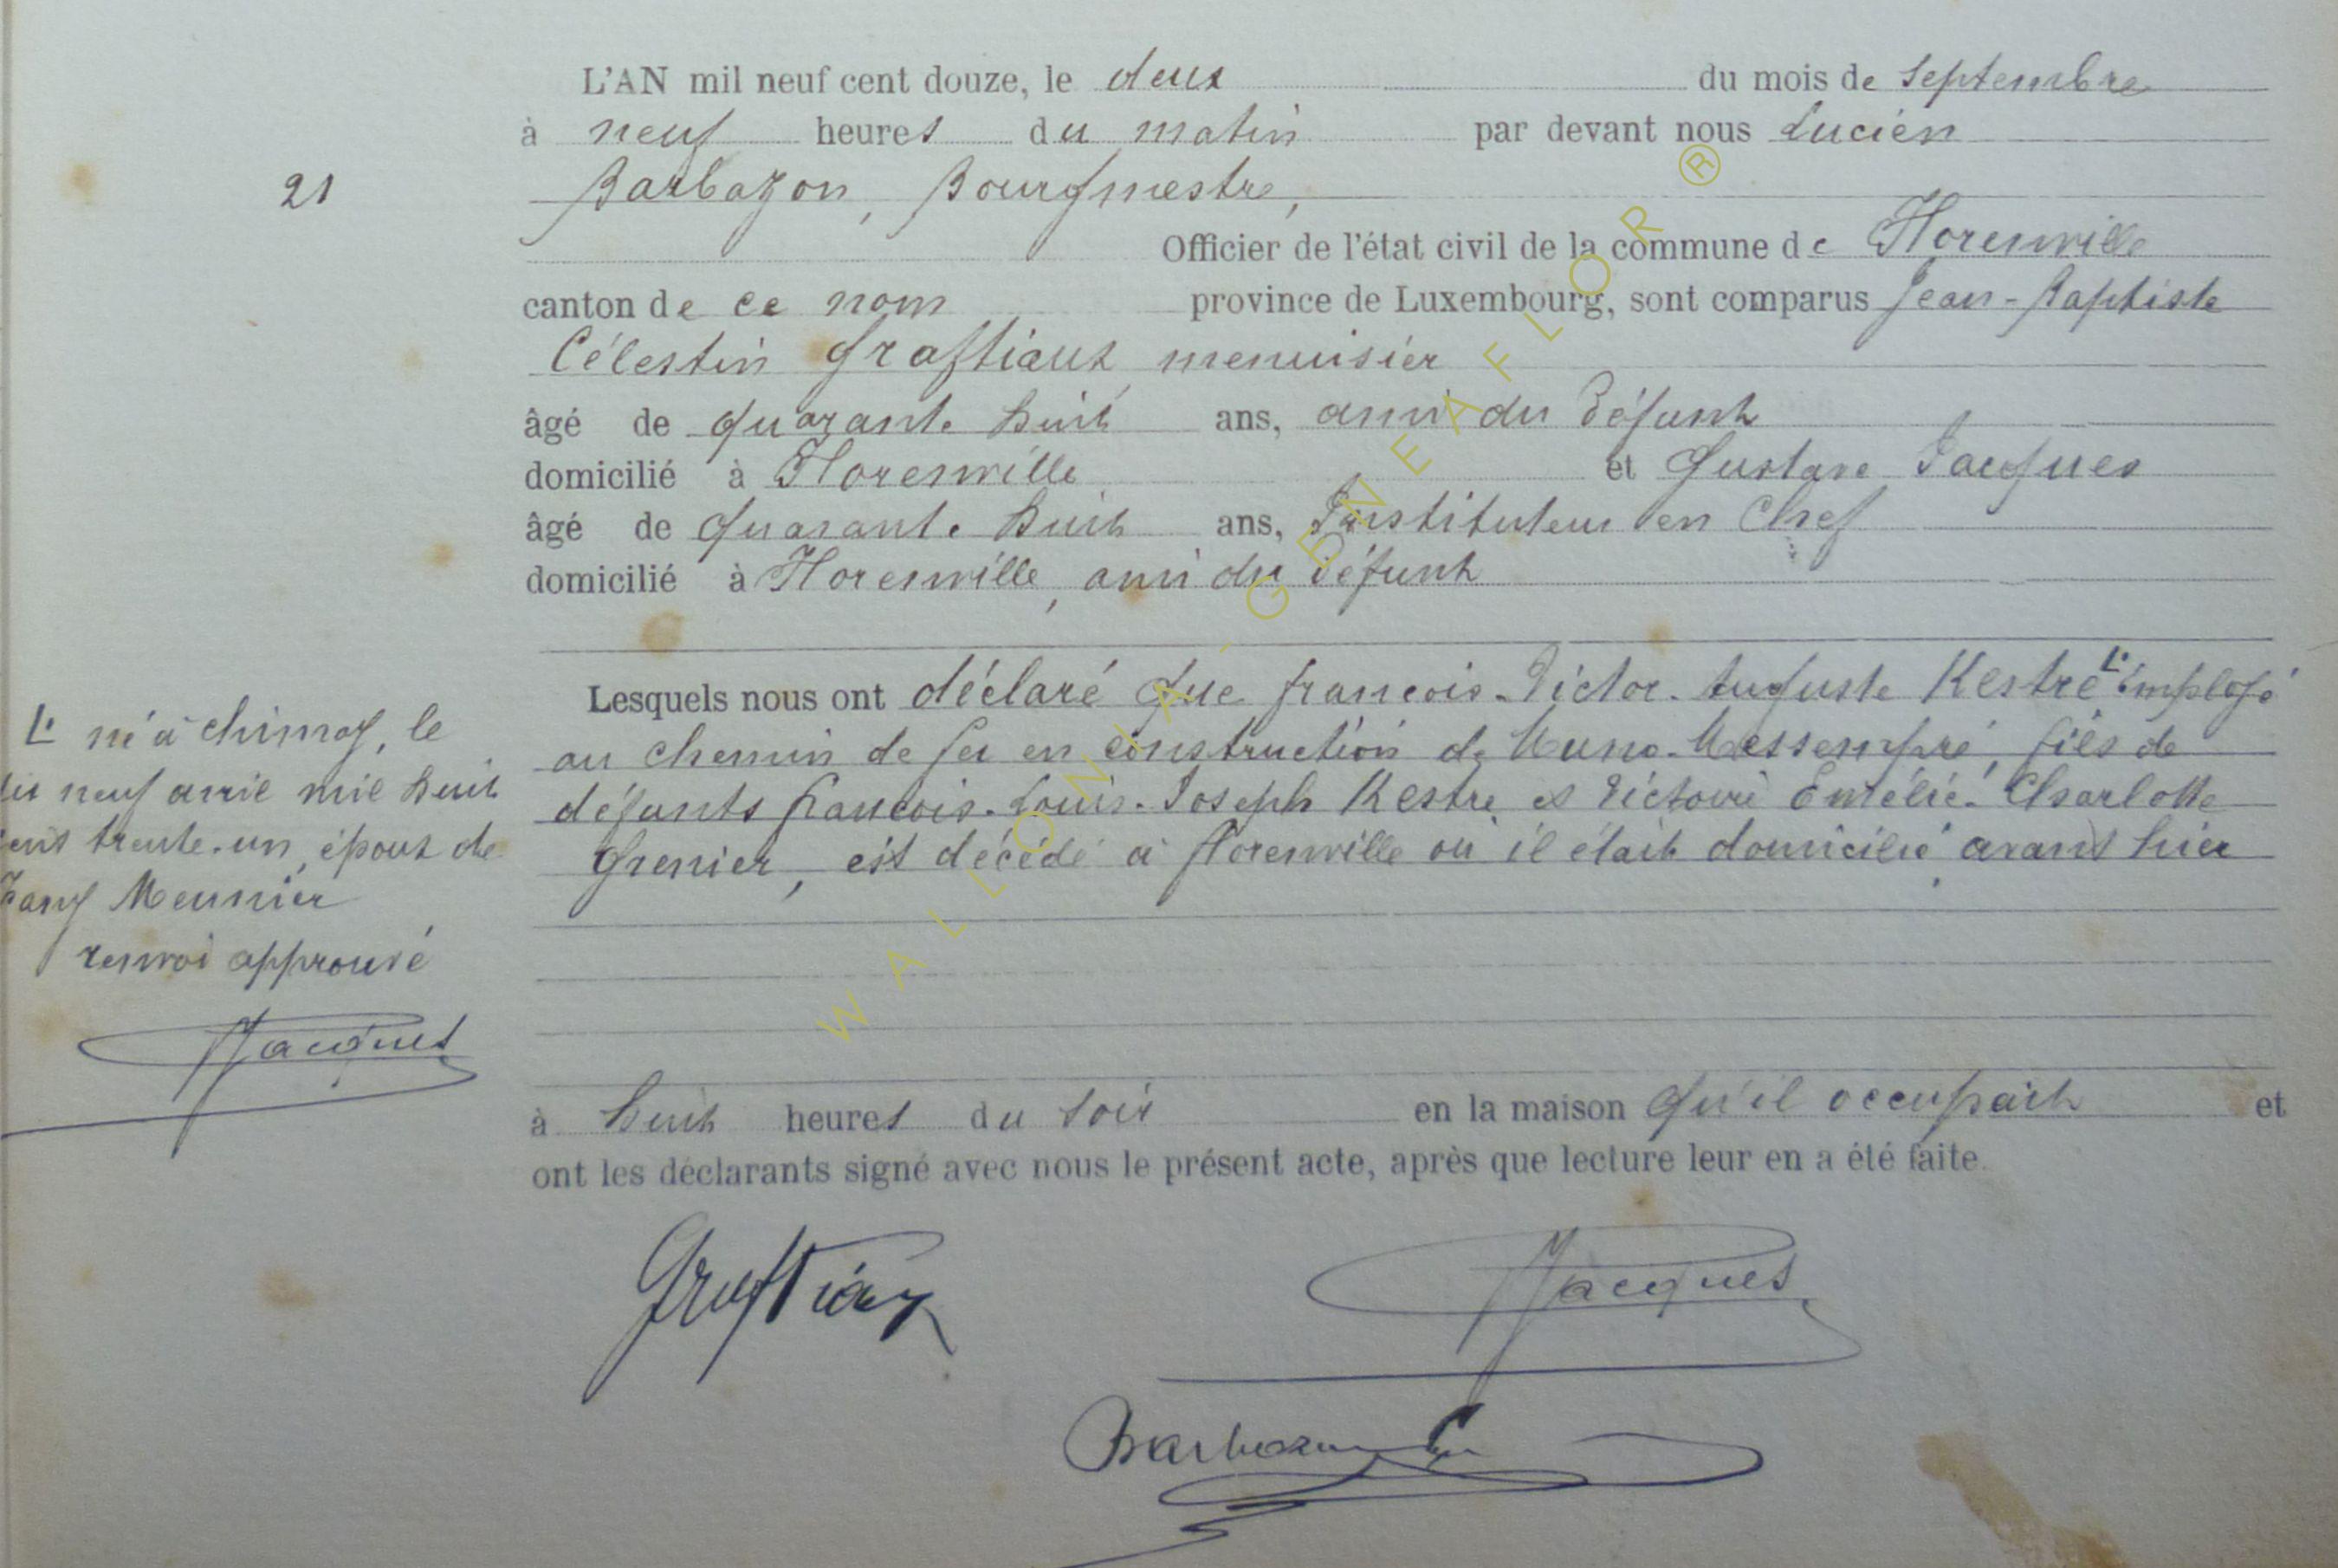 L'AN mil neuf cent douze, le deux du mois de septembre
à neuf heures du matin par devant nous Lucien
21
Barbazon, Bourgmestre,
Officier de l'état civil de la commune de Florenville
canton de ce nom province de Luxembourg, sont comparus Jean-Baptiste
Célestin Graftiaux menuisier
âgé de quarante huit ans, ami du défunt
domicilié à Florenville et Gustave Jacques
âgé de quarante huit ans, Instituteur en Chef
domicilié à Florenville, ami du défunt
Lesquels nous ont déclaré que francois-Victor-Auguste Kestre L. employé
au chemin de fer en construction de Muno-Messempré, fils de
défunts francois-Louis-Joseph Kestre et Victoire Emélie-Charlotte
Grenier, est décédé à florenville où il était domicilié avant hier
L. né à chimay, le
dix neuf avril mil huit
cent trente-un, époux de
Fany Meunier
renvoi approuvé
Jacques
à huit heures du soir en la maison qu'il occupait et
ont les déclarants signé avec nous le présent acte, après que lecture leur en a été faite.
Graftiaux
Jacques
Barbazon L
WALLONIA-GENEAFLOR ®